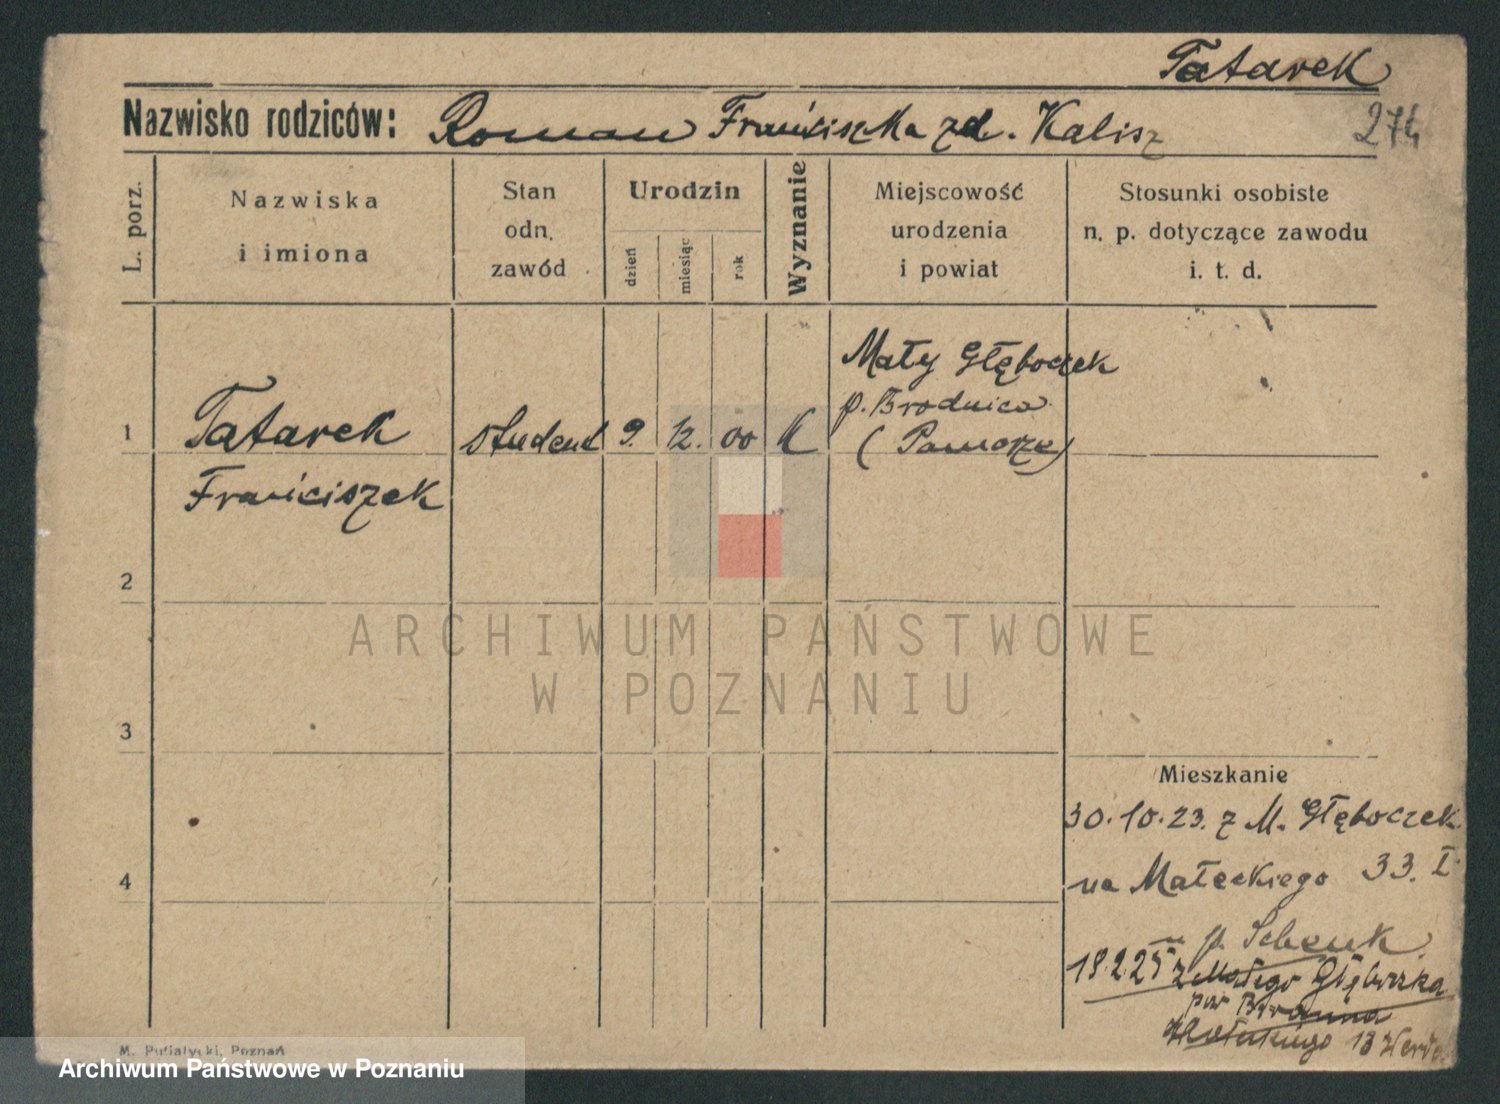 Tatarek
Nazwisko rodziców: Roman Franciszka zd. Kalisz
274
L. porz.
Nazwiska
i imiona
Stan
odn.
zawód
Urodzin
dzień
miesiąc
rok
Wyznanie
Miejscowość
urodzenia
i powiat
Stosunki osobiste
n. p. dotyczące zawodu
i. t. d.
Mały Głęboczek
p. Brodnica
1 Tatarek student 9. 12. 00 K (Pomorze)
Franciszek
2
ARCHIWUM PAŃSTWOWE
W POZNANIU
3
Mieszkanie
30.10.23. z M. Głęboczek
4
na Małeckiego 33. I
p. Schenk
18.2.25 z Małego Głęboczka
pow
13
M. Putiatycki, Poznań
Archiwum Państwowe w Poznaniu